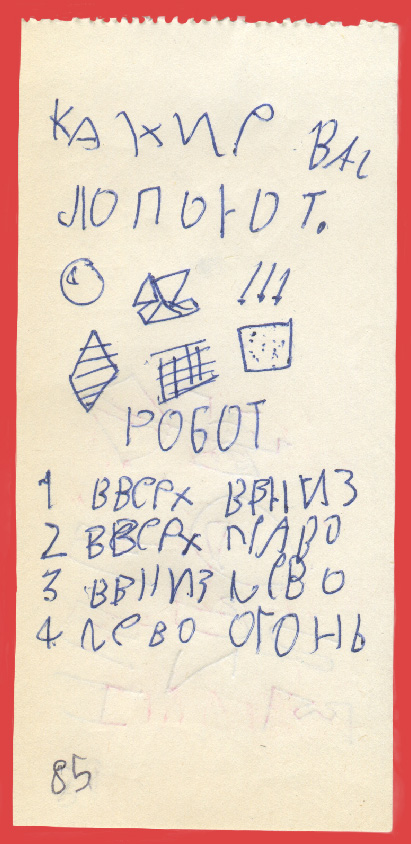 КАЖИР ВАС
ЛОПОЮТ.
РОБОТ
1 ВВЕРХ ВВНИЗ
2 ВВЕРХ ПРАВО
3 ВВНИЗ ЛЕВО
4 ЛЕВО ОГОНЬ
85